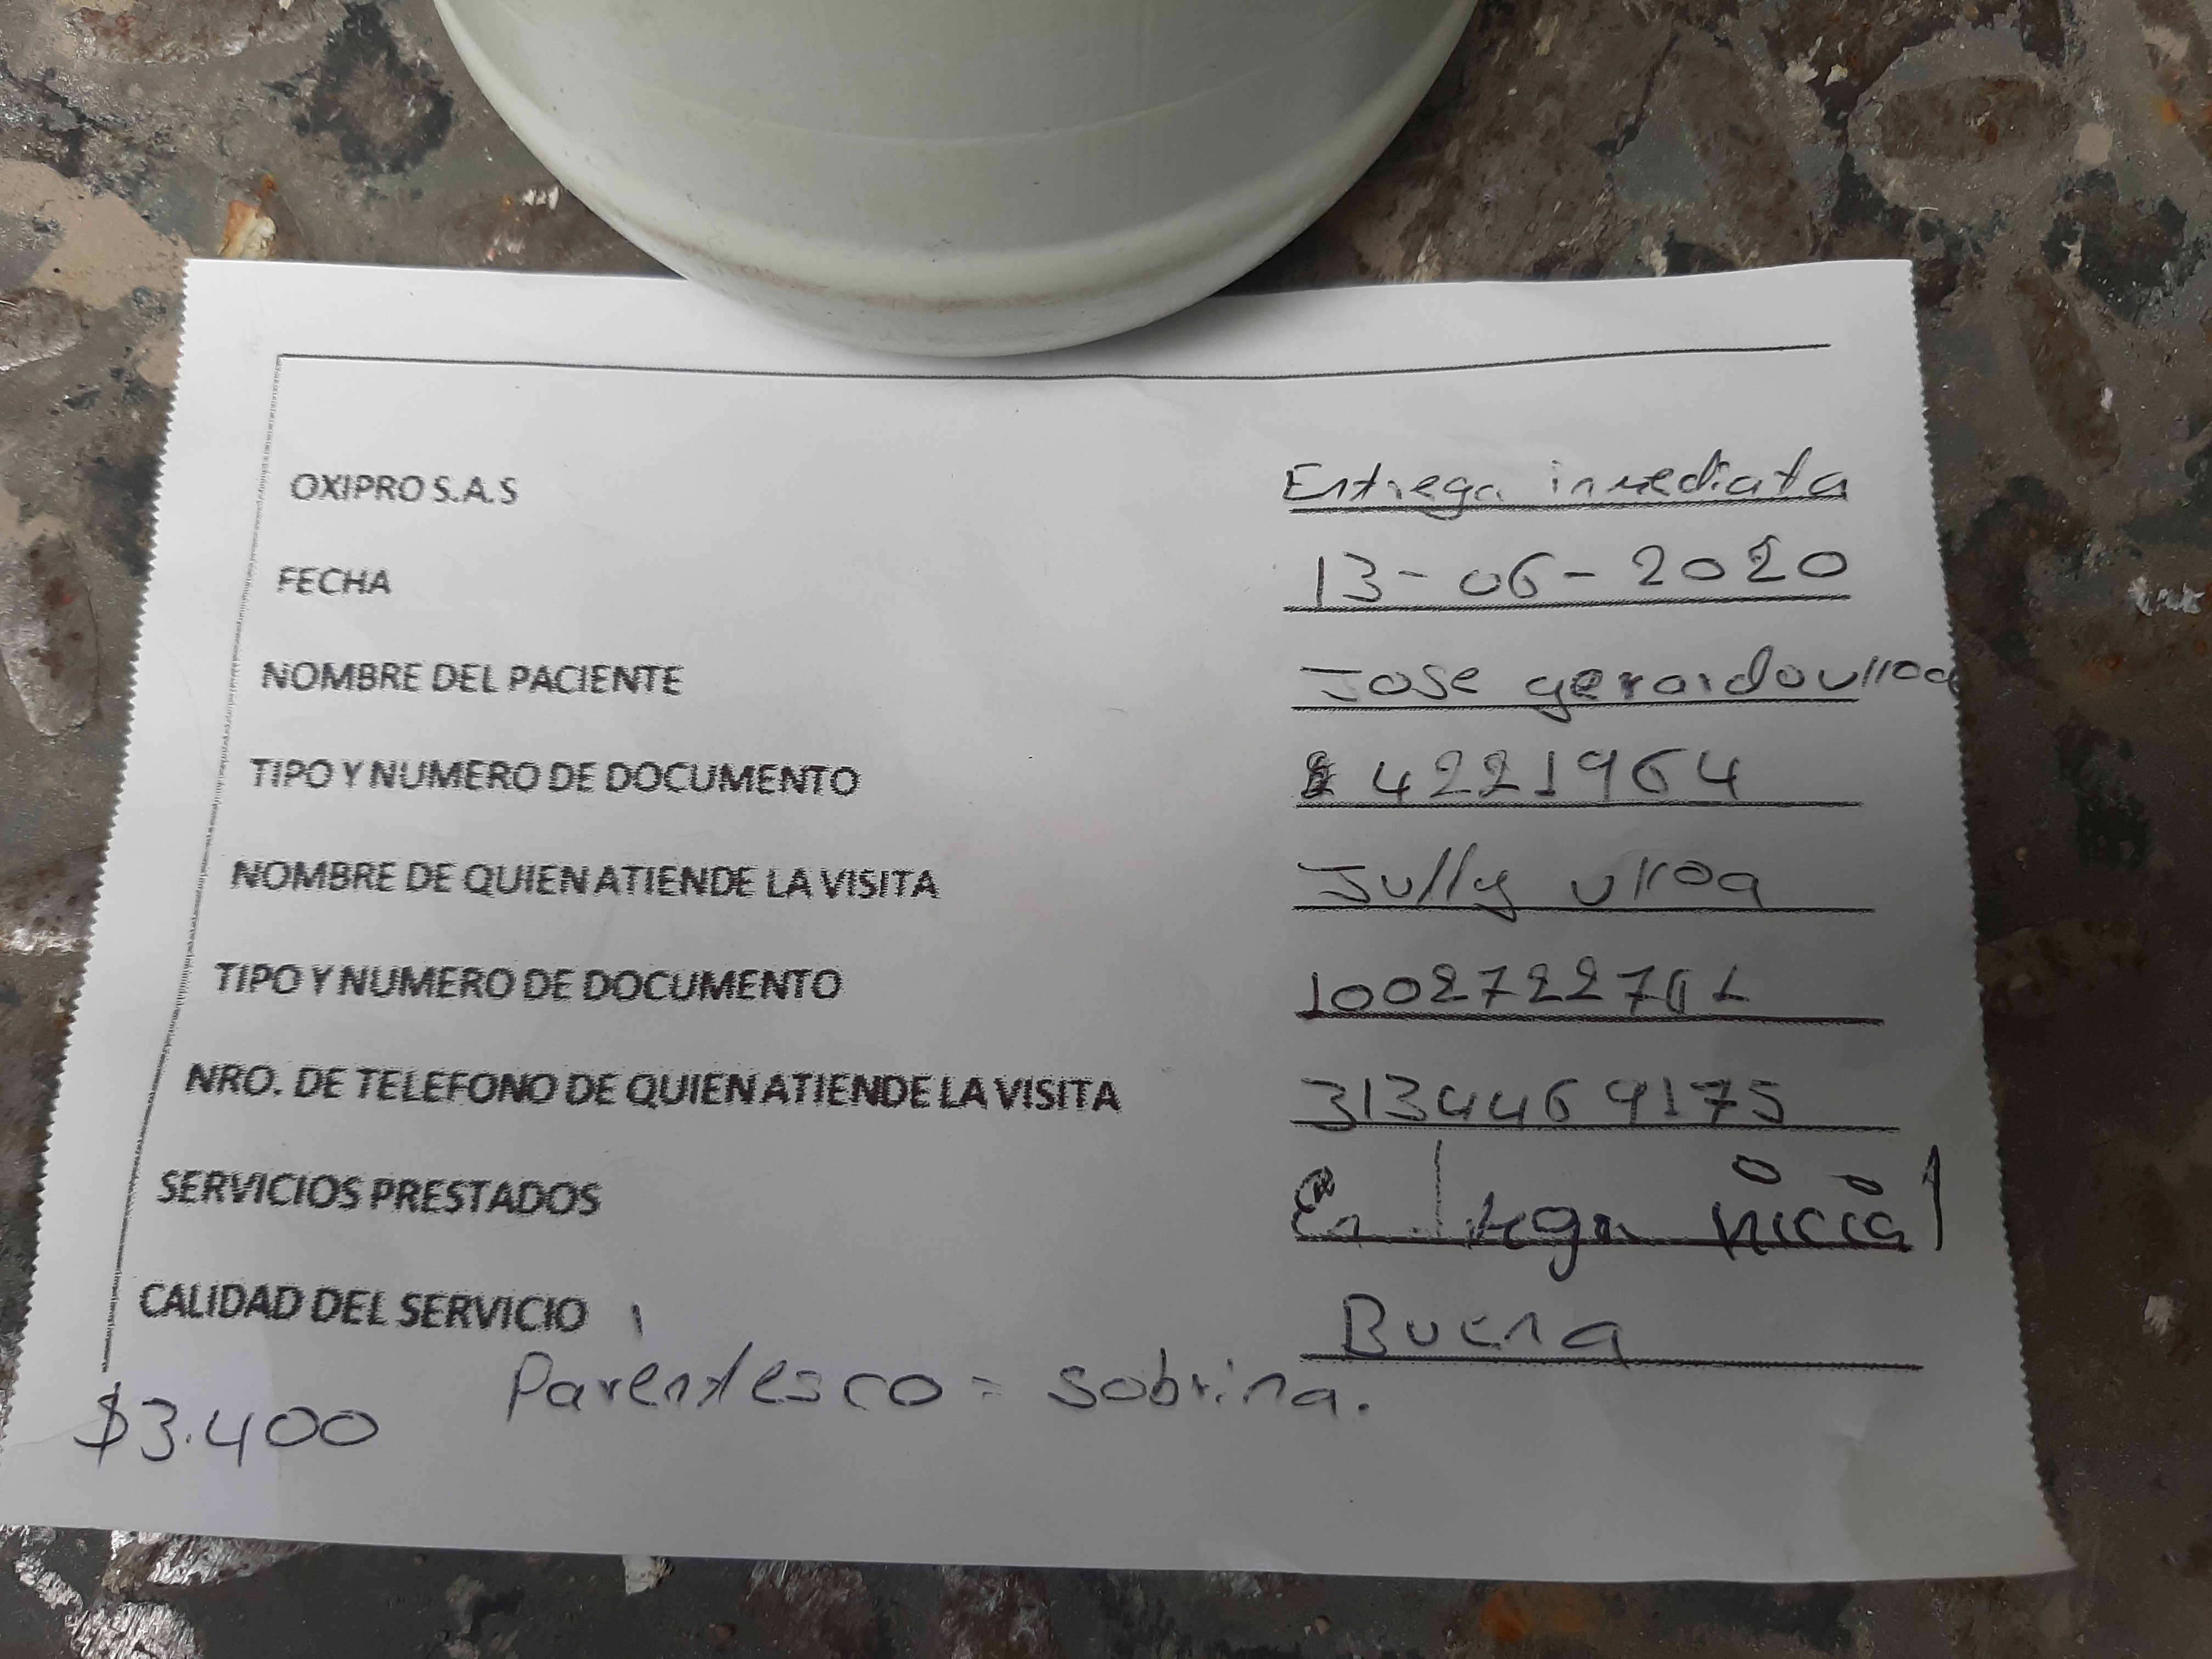 OXIPRO S.A.S Entrega inmediata
FECHA 13-06-2020
NOMBRE DEL PACIENTE Jose gerardo ulloa
TIPO Y NUMERO DE DOCUMENTO 4221964
NOMBRE DE QUIEN ATIENDE LA VISITA Jully ulloa
TIPO Y NUMERO DE DOCUMENTO
NRO. DE TELEFONO DE QUIEN ATIENDE LA VISITA 3134469175
SERVICIOS PRESTADOS Entrega inicial
CALIDAD DEL SERVICIO Buena
Parentesco = sobrina.
$3.400